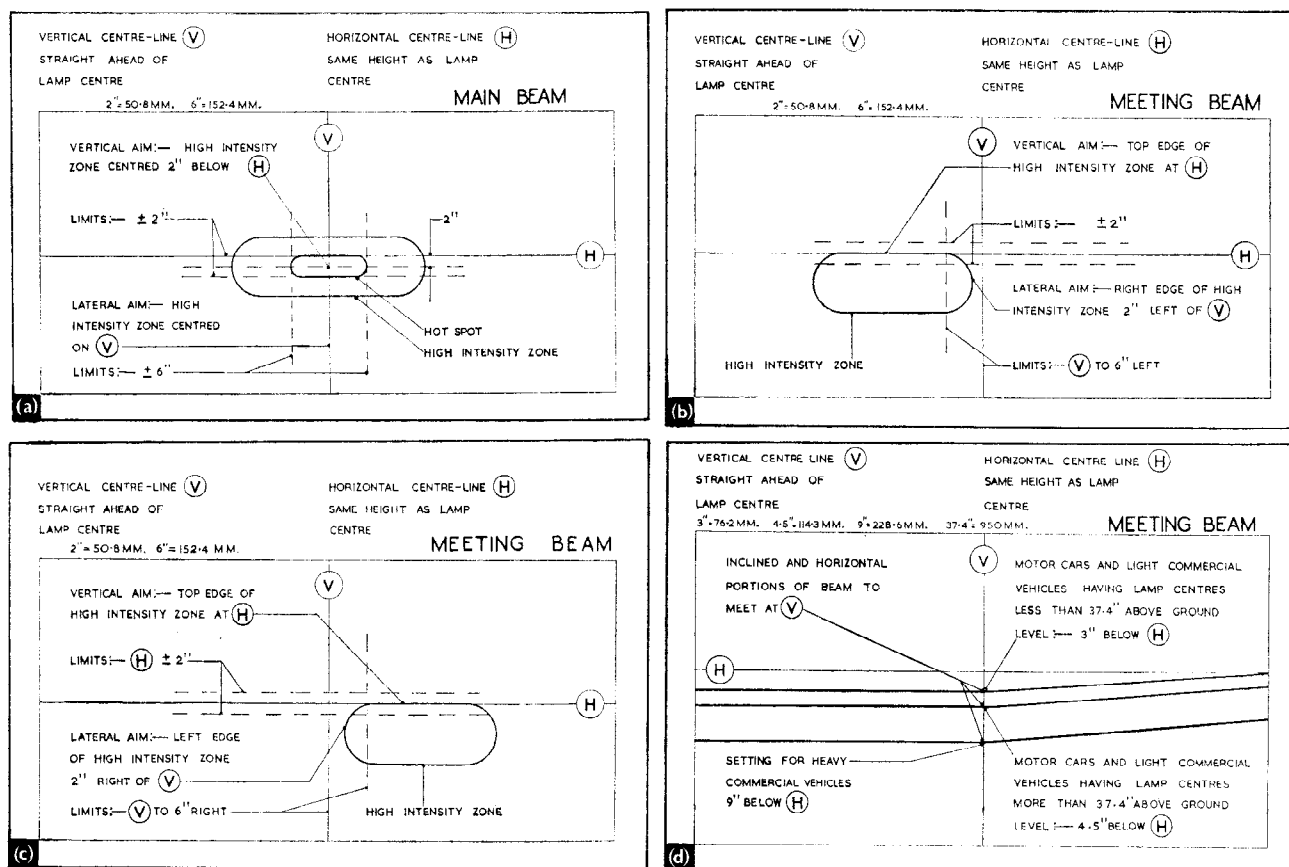 VERTICAL CENTRE-LINE V
STRAIGHT AHEAD OF
LAMP CENTRE
HORIZONTAL CENTRE-LINE H
SAME HEIGHT AS LAMP
CENTRE
2"=50·8MM. 6"=152·4MM.
MAIN BEAM
V
VERTICAL AIM:— HIGH INTENSITY
ZONE CENTRED 2" BELOW H
LIMITS:— ± 2"
2"
H
LATERAL AIM:— HIGH
INTENSITY ZONE CENTRED
ON V
HOT SPOT
HIGH INTENSITY ZONE
LIMITS:— ± 6"
(a)
VERTICAL CENTRE-LINE V
STRAIGHT AHEAD OF
LAMP CENTRE
HORIZONTAL CENTRE-LINE H
SAME HEIGHT AS LAMP
CENTRE
2"=50·8MM. 6"=152·4MM.
MEETING BEAM
V
VERTICAL AIM:— TOP EDGE OF
HIGH INTENSITY ZONE AT H
LIMITS:— ± 2"
H
LATERAL AIM:— RIGHT EDGE OF HIGH
INTENSITY ZONE 2" LEFT OF V
HIGH INTENSITY ZONE
LIMITS:— V TO 6" LEFT
(b)
VERTICAL CENTRE-LINE V
STRAIGHT AHEAD OF
LAMP CENTRE
HORIZONTAL CENTRE-LINE H
SAME HEIGHT AS LAMP
CENTRE
2"=50·8MM. 6"=152·4 MM.
MEETING BEAM
V
VERTICAL AIM:— TOP EDGE OF
HIGH INTENSITY ZONE AT H
LIMITS:— H ± 2"
H
LATERAL AIM:— LEFT EDGE
OF HIGH INTENSITY ZONE
2" RIGHT OF V
LIMITS:— V TO 6" RIGHT
HIGH INTENSITY ZONE
(c)
VERTICAL CENTRE LINE V
STRAIGHT AHEAD OF
LAMP CENTRE
HORIZONTAL CENTRE LINE H
SAME HEIGHT AS LAMP
CENTRE
3"=76·2MM. 4·5"=114·3MM. 9"=228·6MM. 37·4"=950MM.
MEETING BEAM
V
INCLINED AND HORIZONTAL
PORTIONS OF BEAM TO
MEET AT V
MOTOR CARS AND LIGHT COMMERCIAL
VEHICLES HAVING LAMP CENTRES
LESS THAN 37·4" ABOVE GROUND
LEVEL:— 3" BELOW H
H
SETTING FOR HEAVY
COMMERCIAL VEHICLES
9" BELOW H
MOTOR CARS AND LIGHT COMMERCIAL
VEHICLES HAVING LAMP CENTRES
MORE THAN 37·4" ABOVE GROUND
LEVEL:— 4·5" BELOW H
(d)